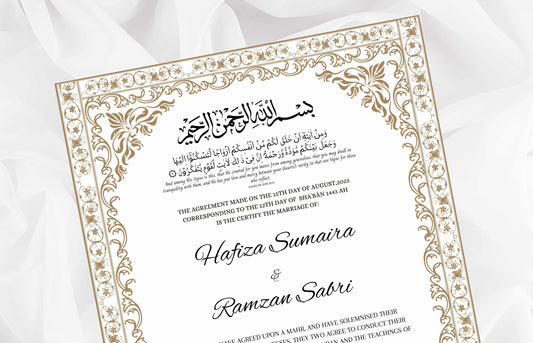 بسم الله الرحمن الرحيم
وَمِنْ آيَاتِهِ أَنْ خَلَقَ لَكُم مِّنْ أَنفُسِكُمْ أَزْوَاجًا لِّتَسْكُنُوا إِلَيْهَا
وَجَعَلَ بَيْنَكُم مَّوَدَّةً وَرَحْمَةً إِنَّ فِي ذَٰلِكَ لَآيَاتٍ لِّقَوْمٍ يَتَفَكَّرُونَ
And among His Signs is this, that He created for you mates from among yourselves, that you may dwell in
tranquility with them, and He has put love and mercy between your (hearts): verily in that are Signs for those
who reflect.
THE AGREEMENT MADE ON THE 13TH DAY OF AUGUST,2023
CORRESPONDING TO THE 12TH DAY OF SHA'BĀN 1443 AH
IS THE CERTIFY THE MARRIAGE OF:
Hafiza Sumaira
&
Ramzan Sabri
HAVE AGREED UPON A MAHR, AND HAVE SOLEMNISED THEIR
THEY TWO AGREE TO CONDUCT THEIR
AND THE TEACHINGS OF